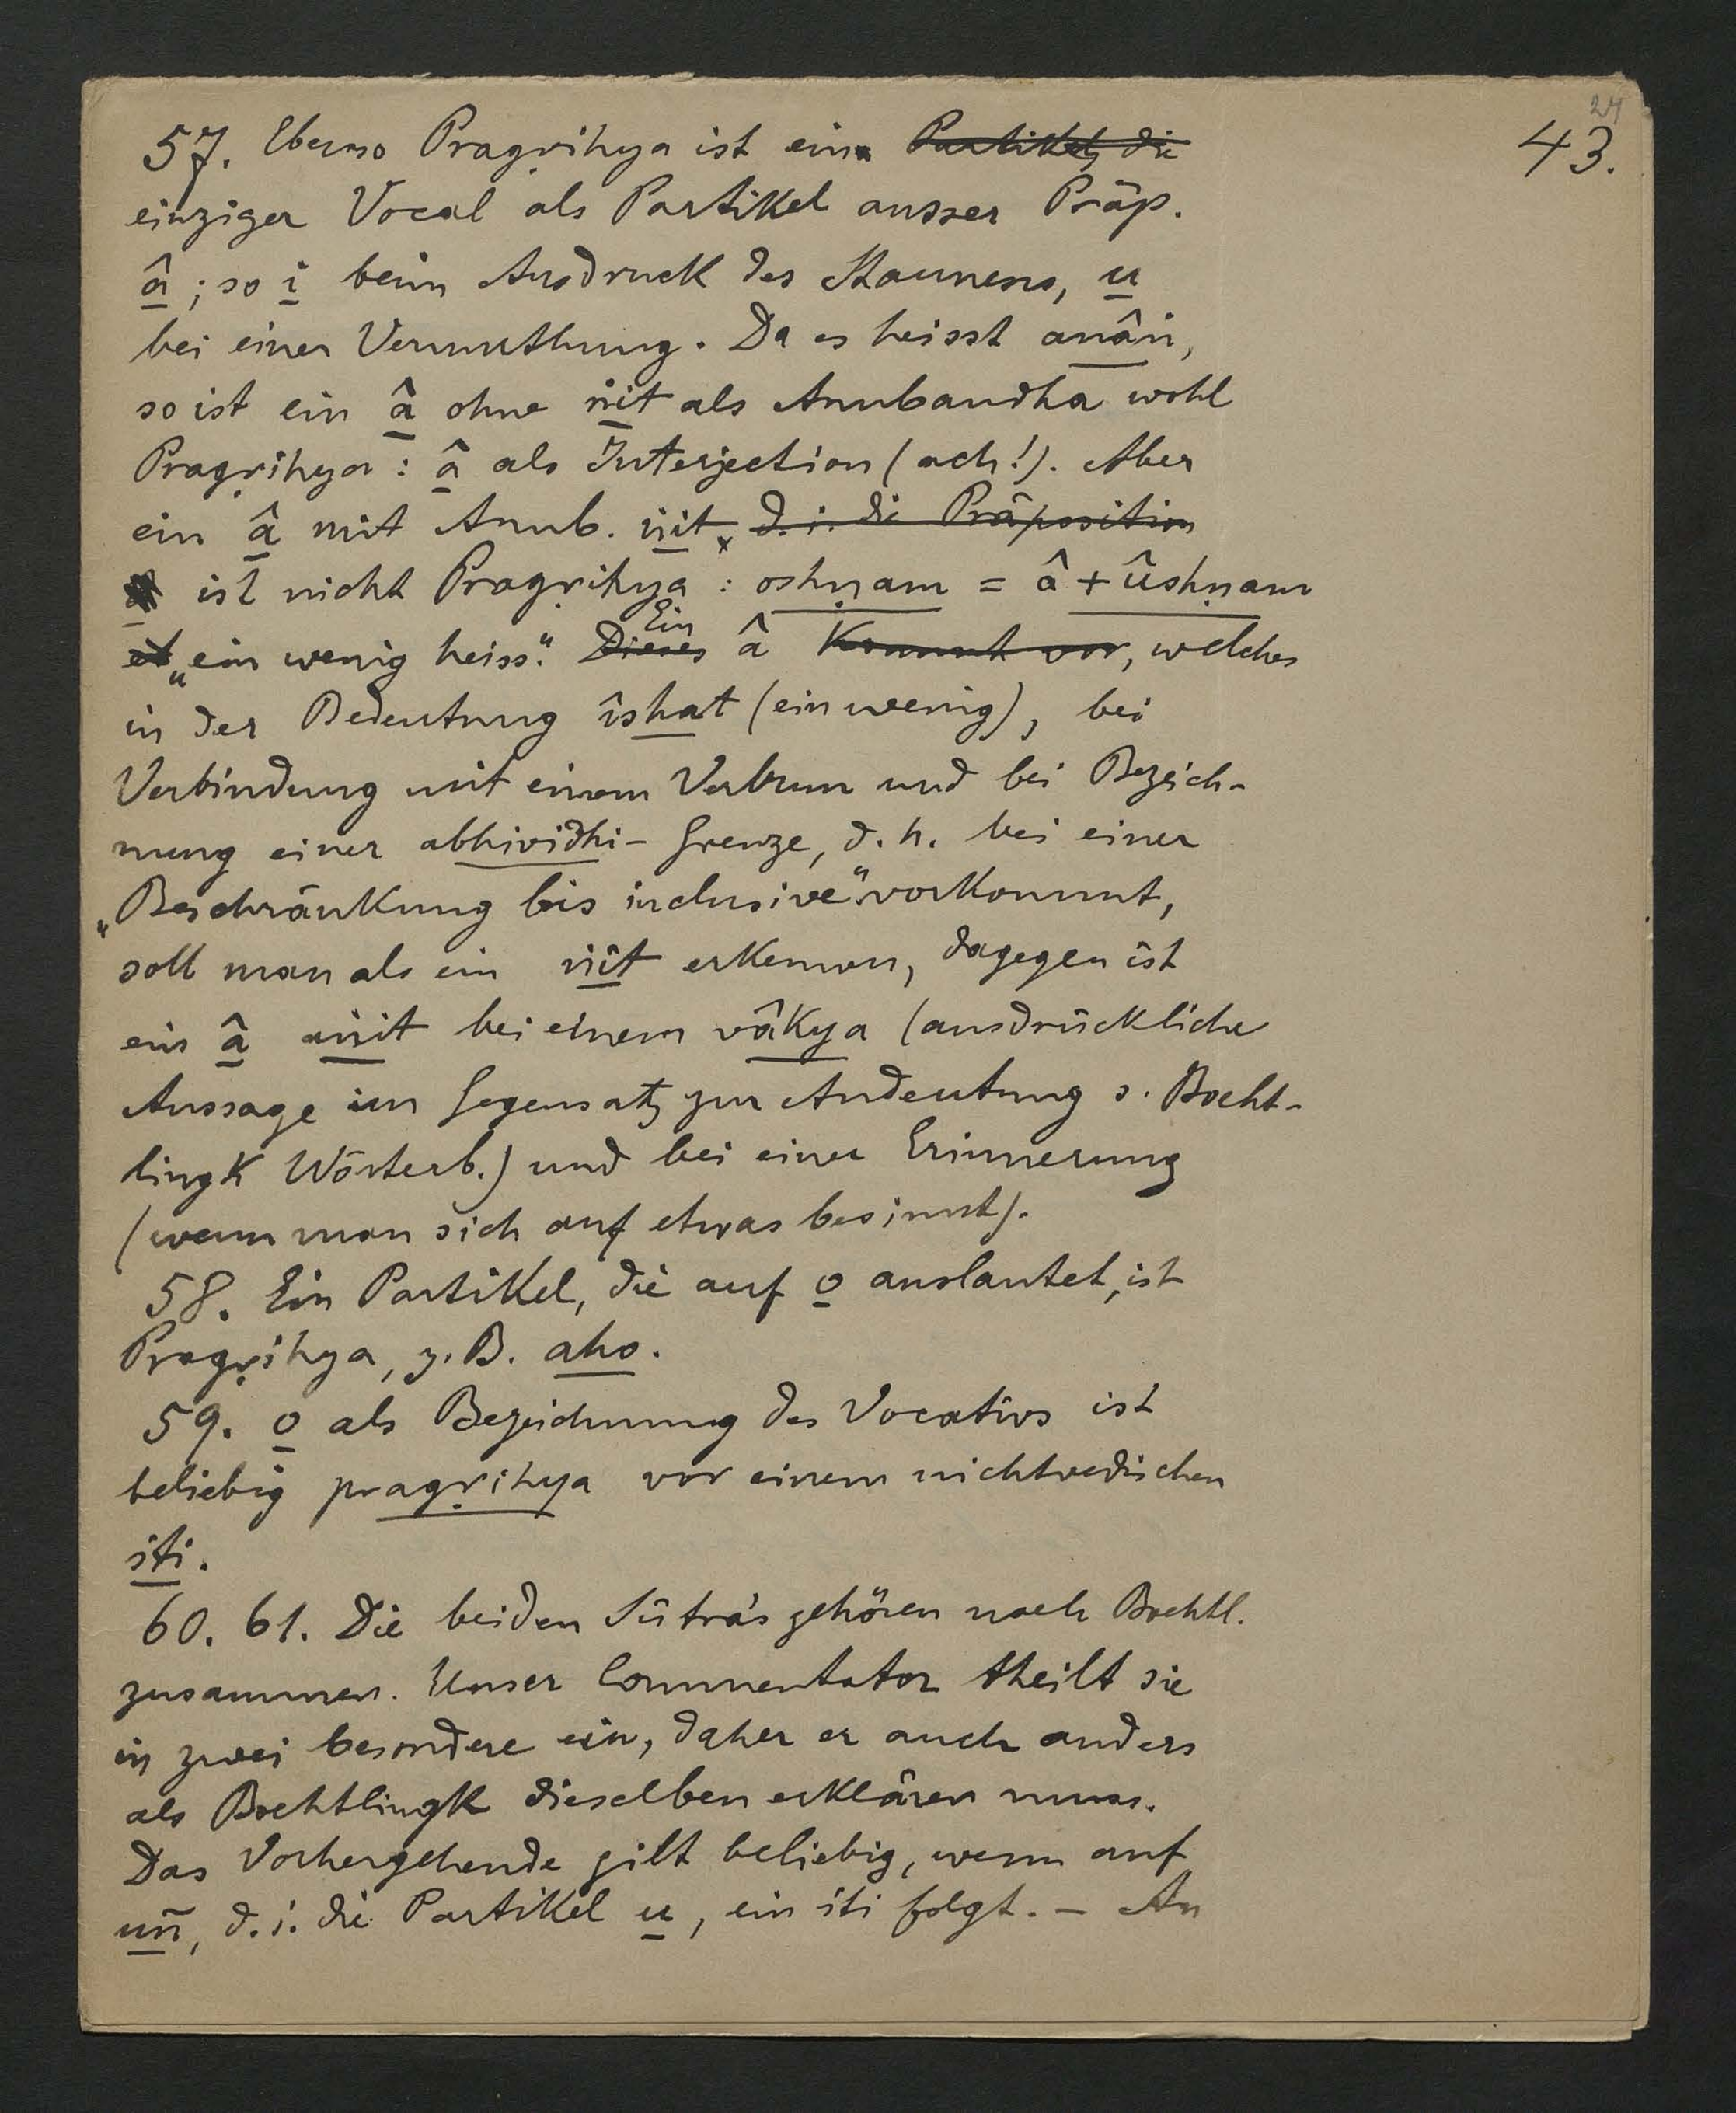 24
43.
57. Ebenso Pragṛihya ist ein Partikel, die
einziger Vocal als Partikel ausser Präp.
â; so i beim Ausdruck des Staunens, u
bei einer Vermuthung. Da es heisst anâṅ,
so ist ein â ohne ṅit als Anubandha wohl
Pragṛihya: â als Interjection (ach!). Aber
ein â mit Anub. ṅit, d. i. die Präposition
ist nicht Pragṛihya: oshṇam = â + ûshṇam
„ein wenig heiss“. Dieses Ein â kommt vor, welches
in der Bedeutung îshat (ein wenig), bei
Verbindung mit einem Verbum und bei Bezeich-
nung einer abhividhi-Grenze, d. h. bei einer
„Beschränkung bis inclusive“ vorkommt,
soll man als ein ṅit erkennen, dagegen ist
ein â aṅit bei einem vâkya (ausdrückliche
Aussage im Gegensatz zur Andeutung s. Boeht-
lingk Wörterb.) und bei einer Erinnerung
(wenn man sich auf etwas besinnt).
58. Ein Partikel, die auf o auslautet, ist
Pragṛihya, z. B. aho.
59. o als Bezeichnung des Vocativs ist
beliebig pragṛihya vor einem nichtvedischen
iti.
60. 61. Die beiden Sûtra's gehören nach Boehtl.
zusammen. Unser Commentator theilt sie
in zwei besondere ein, daher er auch anders
als Boehtlingk dieselben erklären muss.
Das Vorhergehende gilt beliebig, wenn auf
uñ, d. i. die Partikel u, ein iti folgt. – An